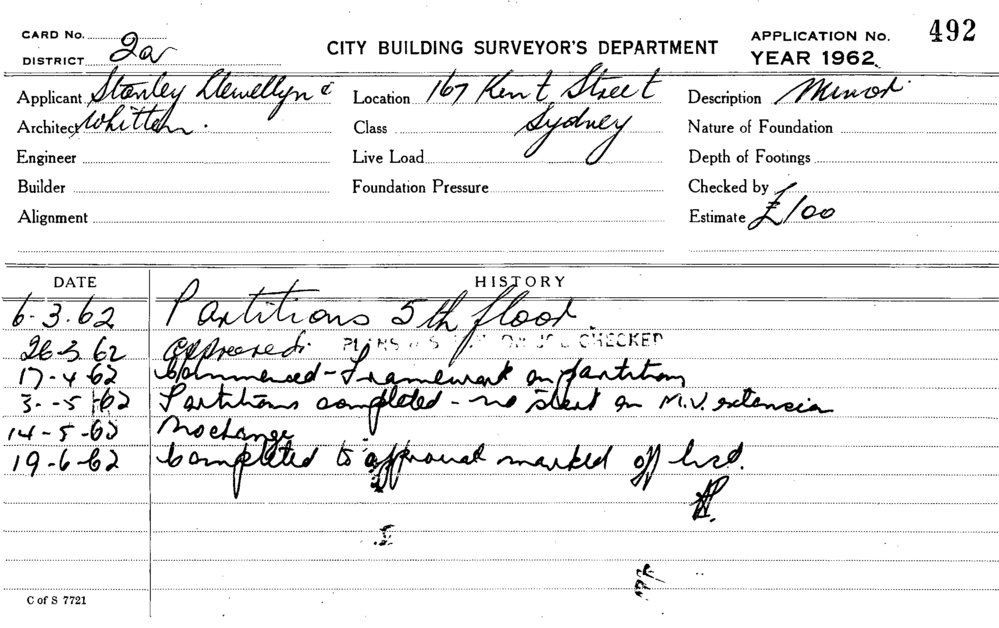 CARD No.
DISTRICT 2a
CITY BUILDING SURVEYOR'S DEPARTMENT
APPLICATION No. 492
YEAR 1962
Applicant Stanley Llewellyn &
Architect Whitten.
Engineer
Builder
Alignment
Location 167 Kent Street
Class Sydney
Live Load
Foundation Pressure
Description Minor
Nature of Foundation
Depth of Footings
Checked by
Estimate £100
DATE HISTORY
6-3.62 Partitions 5th floor
26-3.62 Approved. PLANS CHECKED
17-4-62 Commenced - Framework on partitions
3-5-62 Partitions completed - no start on M.V. extension
14-5-62 No change
19-6-62 Completed to approval marked off list.
C of S 7721